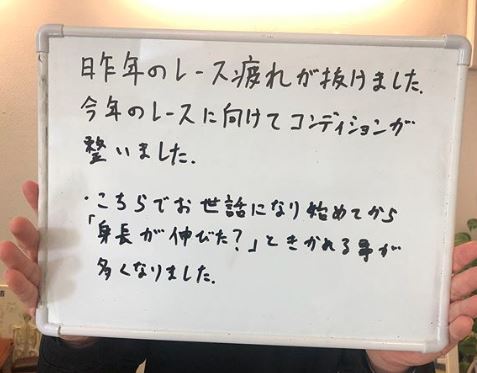 昨年のレース疲れが抜けました.
今年のレースに向けてコンディションが
整いました.
・こちらでお世話になり始めてから
「身長が伸びた?」ときかれる事が
多くなりました.